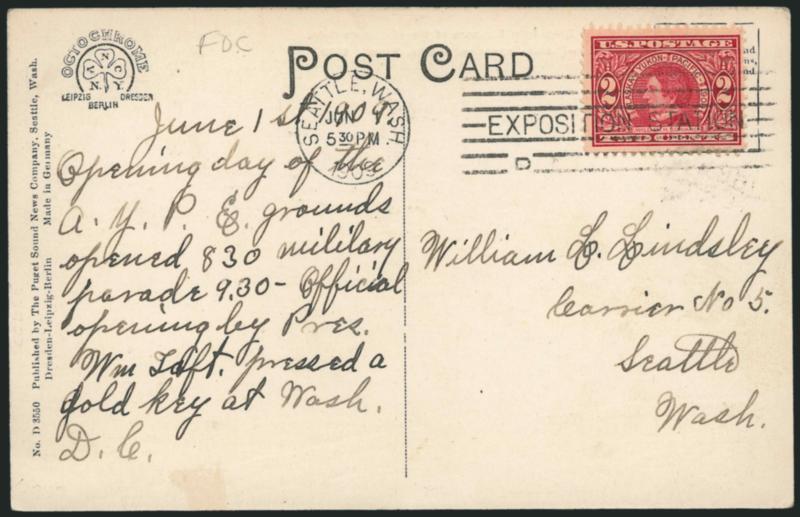 FDC
OCTOCHROME
N.Y.
LEIPZIG DRESDEN
BERLIN
POST CARD
SEATTLE, WASH.
JUN 1
5 30 PM
1909
EXPOSITION STATION
D
U.S. POSTAGE
ALASKA-YUKON-PACIFIC-1909
2 2
TWO CENTS
No. D 3550 Published by The Puget Sound News Company, Seattle, Wash.
Dresden-Leipzig-Berlin Made in Germany
June 1st 1909
Opening day of the
A. Y. P. E. grounds
opened 830 military
parade 9.30 - Official
opening by Pres.
Wm Taft. pressed a
gold key at Wash.
D. C.
William L. Lindsley
Carrier No 5.
Seattle
Wash.